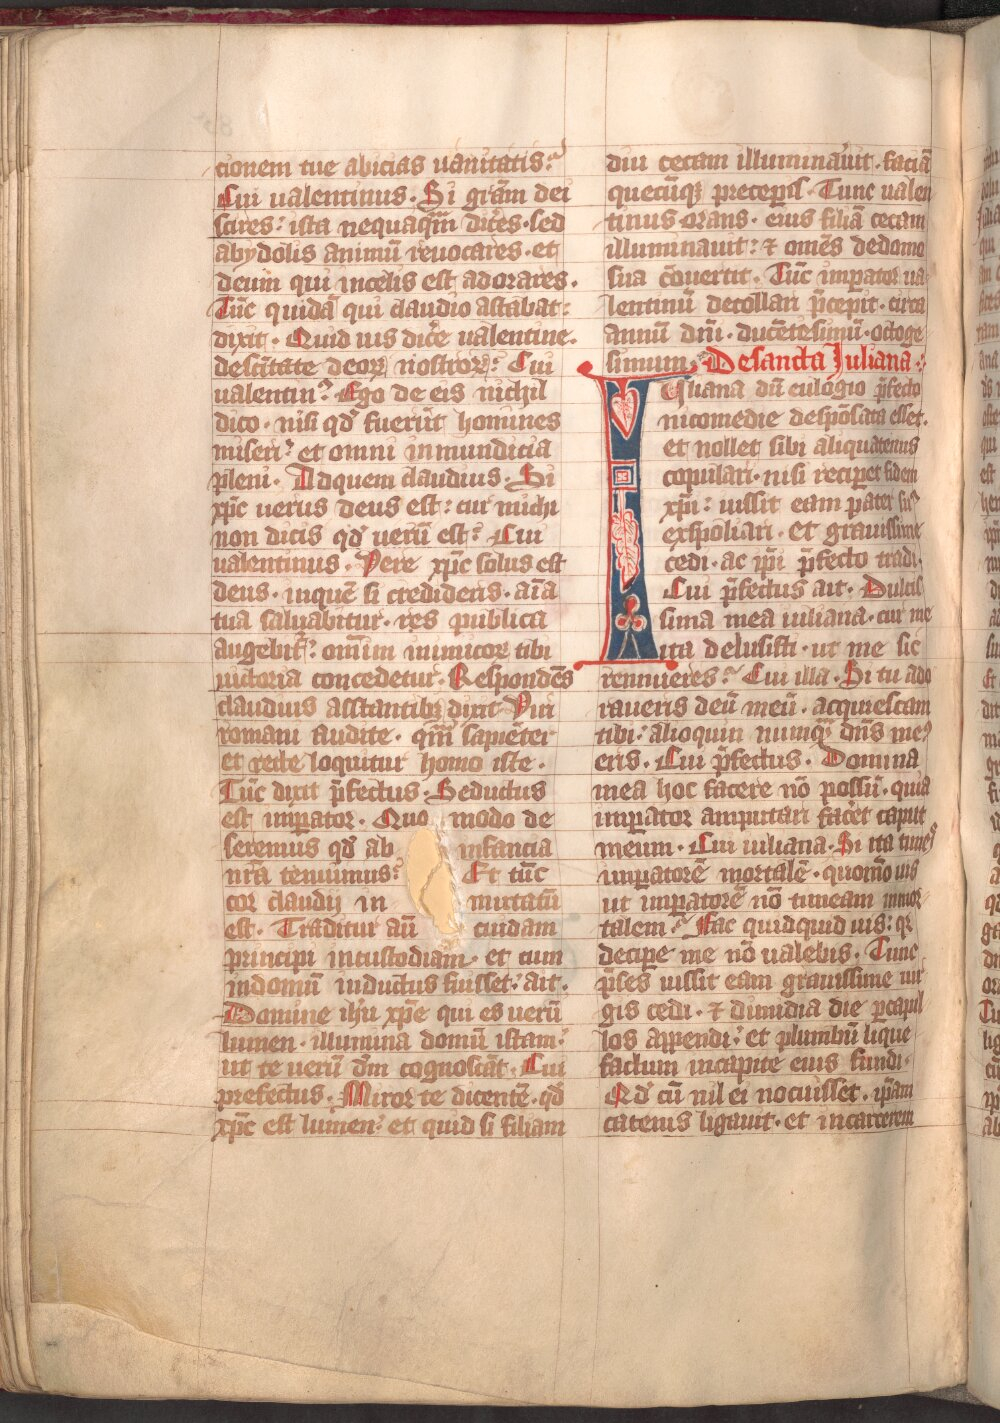 cionem tue abicias uanitatis:
Cui ualentinus. Si grãm dei
scires: ista nequaq̃m dic̃es. sed
abydolis animũ reuocares. et
deum qui incelis est adorares.
Tũc quidã qui claudio astabat:
dixit. Quid uis dic̃e ualentine.
descĩtate deoꝝ nostroꝝ: Cui
ualentinꝰ. Ego de eis nichil
dico. nisi qđ fuerũt homines
miseri: et omni inmundicia
pleni. Adquem claudius. Si
xp̃c uerus deus est: cur michi
non dicis qđ uerũ est: Cui
ualentinus. Vere xp̃c solus est
deus. inquẽ si credideris. aĩa
tua saluabitur. res publica
augebit̃: omĩm inimicoꝝ tibi
uictoria concedetur. Respondẽs
claudius asstantibꝫ dixit. Viri
romani audite. qm̃ sapiẽter
et recte loquitur homo iste.
Tũc dixit p̃fectus. Seductus
est imꝑator. Quo modo de
seremus qđ ab infancia
nr̃a tenuimus: Et tũc
cor claudij in mutatũ
est. Traditur aũ cuidam
principi incustodiam. et cum
indomũ inductus fuisset: ait.
Domine ihũ xp̃e qui es uerũ
lumen. illumina domũ istam:
ut te uerũ dm̃ cognoscãt. Cui
prefectus. Miror te dicentẽ. qđ
xp̃c est lumen: et quid si filiam
diu cecam illuminauit. faciã
quecũqꝫ preceperis. Tunc ualen
tinus orans. eius filiã cecam
illuminauit: ⁊ omẽs dedomo
sua cõuertit. Tũc imꝑator ua
lentinũ decollari p̃cepit. circa
annũ dñi. ducẽtesimũ. octoge
simum. De sancta Juliana.
Iuliana dũ eulogio p̃fecto
nicomedie despõsata esset.
et nollet sibi aliquatenus
copulari. nisi reciꝑet fidem
xp̃i: iussit eam pater suꝰ
exspoliari. et grauissime
cedi. ac ip̃i p̃fecto tradi.
Cui p̃fectus ait. Dulcis
sima mea iuliana. cur me
ita delusisti. ut me sic
rennueres: Cui illa. Si tu ado
raueris deũ meũ. acquiescam
tibi: alioquin nunqꝫ dñs meꝰ
eris. Cui p̃fectus. Domina
mea hoc facere nõ possũ. quia
imꝑator amputari facẽt caput
meum. Cui iuliana. Si ita times
imꝑatorẽ mortalẽ. quomõ uis
ut imꝑatorẽ nõ timeam inmor
talem: Fac quidquid uis: qꝛ
decipe me nõ ualebis. Tunc
p̃fes iussit eam grauissime uir
gis cedi. ⁊ dimidia die ꝑ capil
los appendi: et plumbũ lique
factum incapite eius fundi.
Qđ cũ nil ei nocuisset. ip̃am
catenis ligauit. et incarcerem